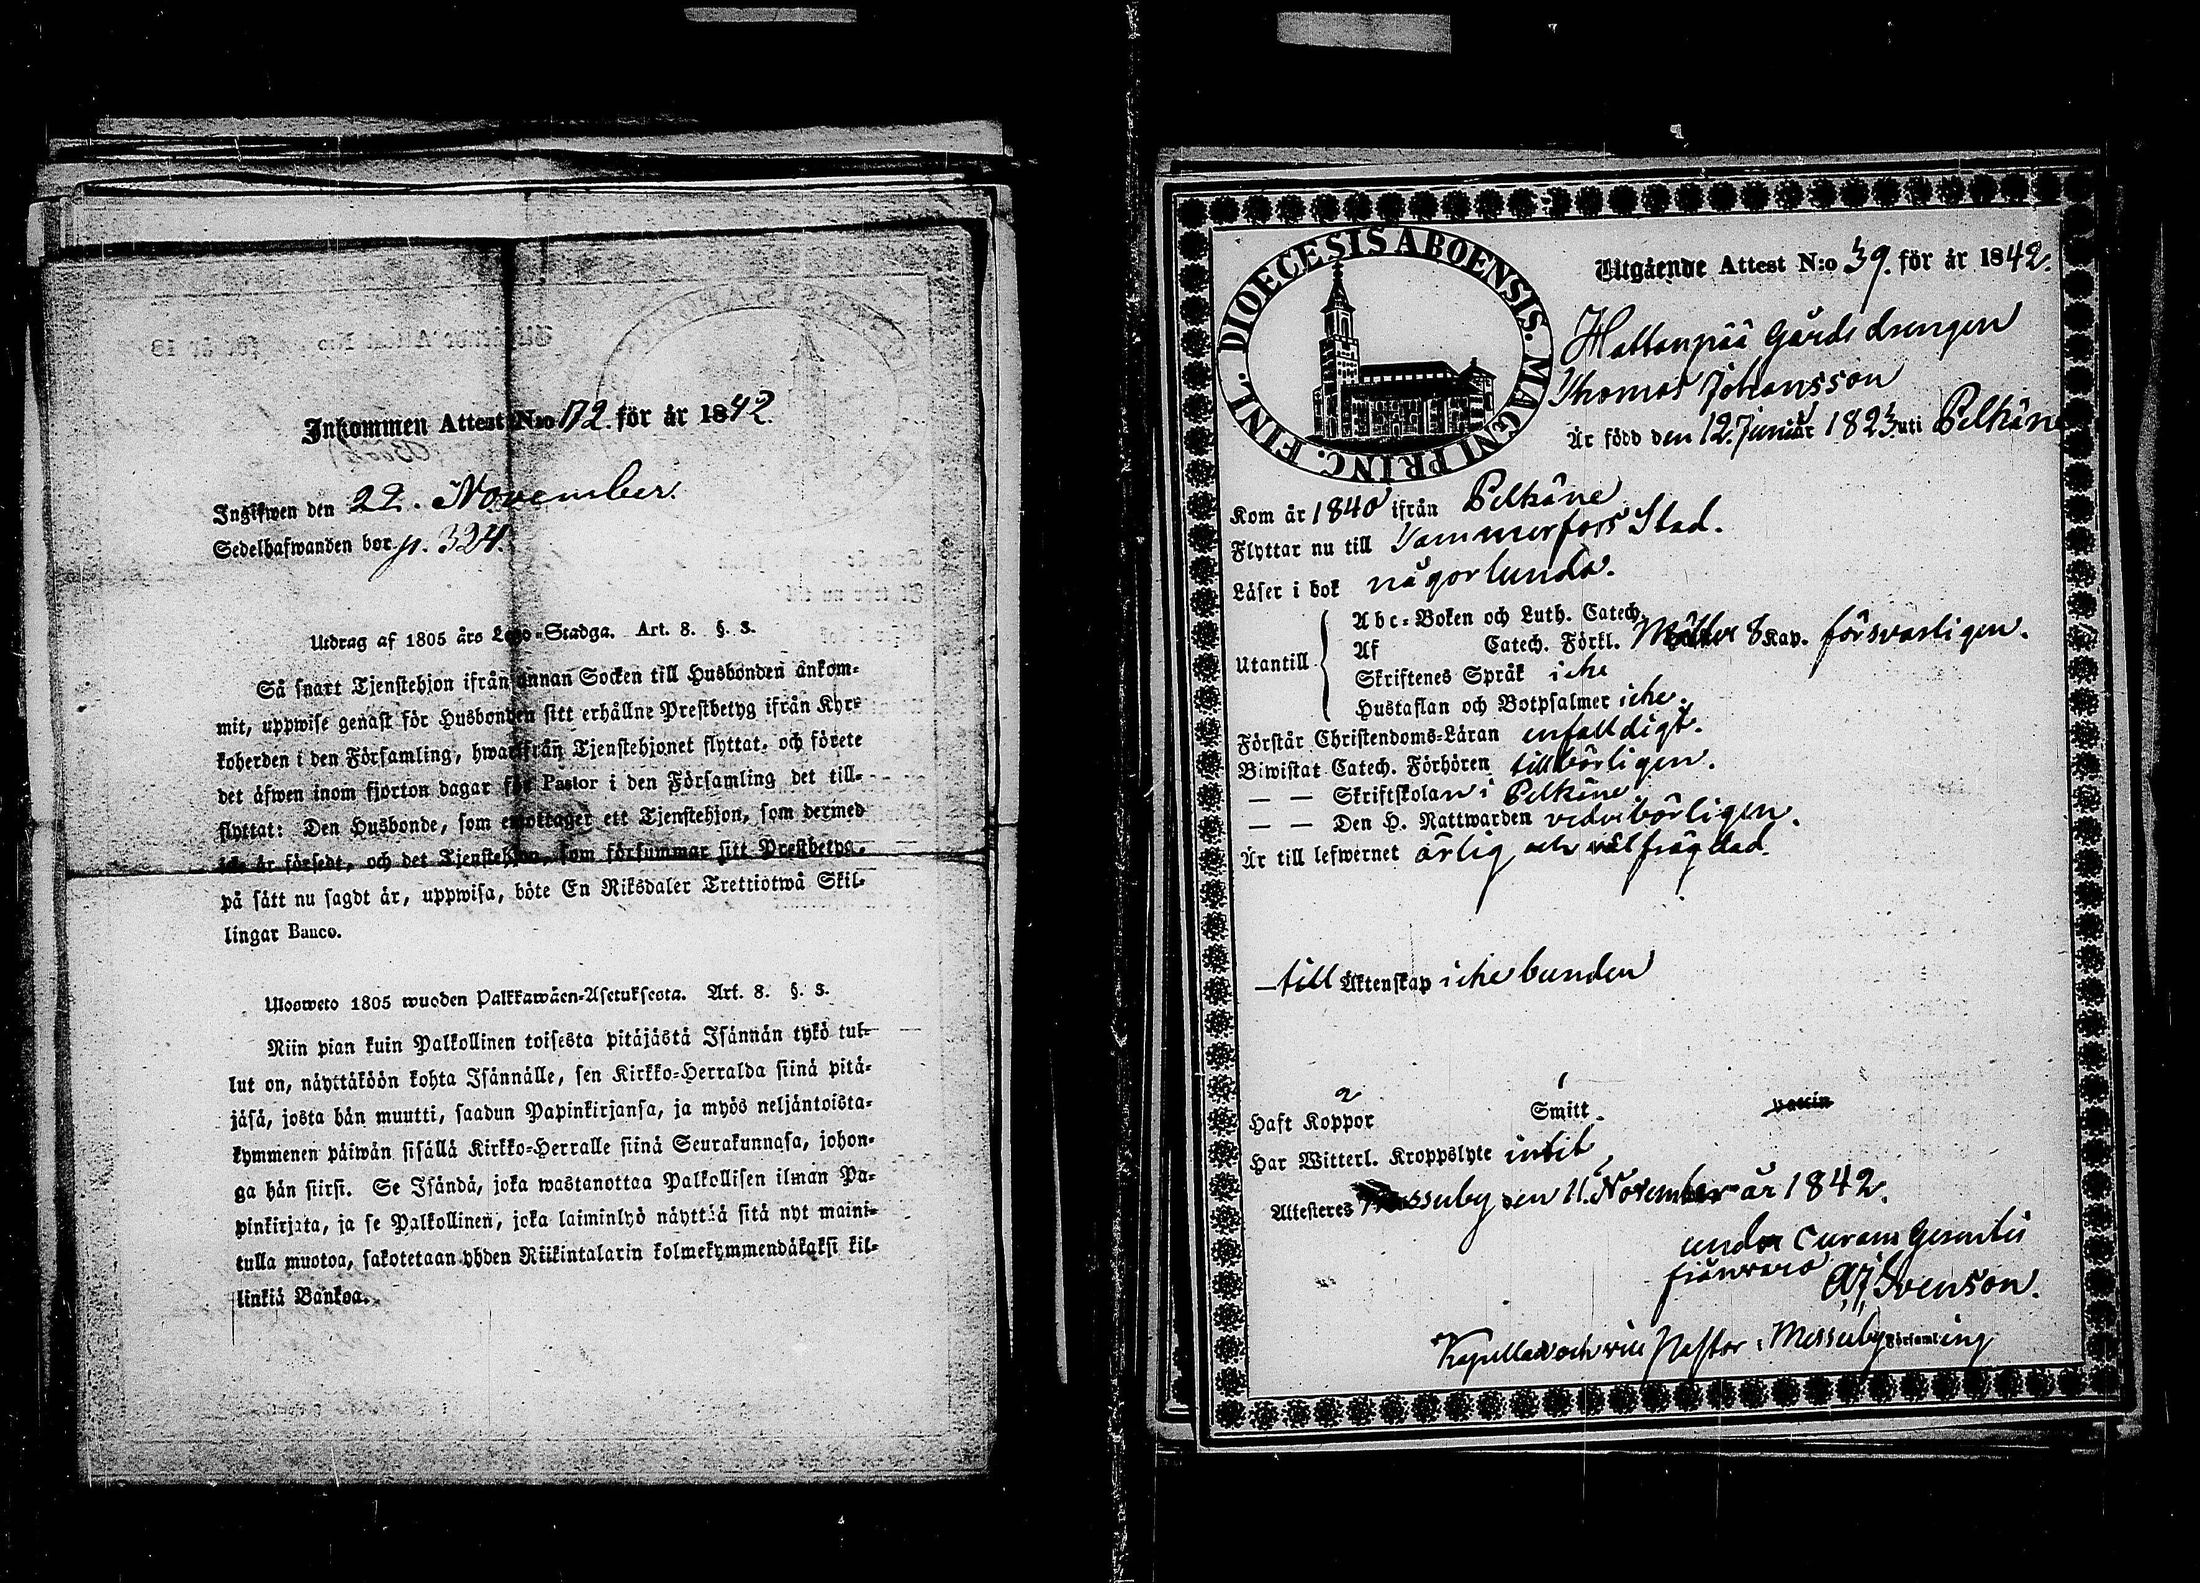 Inkommen Attest N:o 172 för år 1842
Ingifwen den 22. November.
Sedelhafwanden bor p. 324.
Utdrag af 1805 års Lego-Stadga. Art. 8. §. 3.
Så snart Tjenstehjon ifrån annan Socken till Husbonden ankom-
mit, uppwise genast för Husbonden sitt erhållne Prestbetyg ifrån Kyr-
koherden i den Församling, hwarifrån Tjenstehjonet flyttat, och förete
det äfwen inom fjorton dagar för Pastor i den Församling det till-
flyttat: Den Husbonde, som emottager ett Tjenstehjon, som dermed
icke är försedt, och det Tjenstehjon, som försummar sitt Prestbetyg,
på sätt nu sagdt är, uppwisa, böte En Riksdaler Trettiotwå Skil-
lingar Banco.
Ulosweto 1805 wuoden Palkkawäen-Asetuksesta. Art. 8. §. 3.
Niin pian kuin Palkollinen toisesta pitäjästä Isännän tykö tul-
lut on, näyttäköön kohta Isännälle, sen Kirkko-Herralda siinä pitä-
jäsä, josta hän muutti, saadun Papinkirjansa, ja myös neljäntoista-
kymmenen päiwän sisällä Kirkko-Herralle siinä Seurakunnasa, johon-
ga hän siirsi. Se Isändä, joka wastanottaa Palkollisen ilman Pa-
pinkirjata, ja se Palkollinen, joka laiminlyö näyttää sitä nyt maini-
tulla muotoa, sakotetaan yhden Riikintalarin kolmekymmendäkaksi kil-
linkiä Bankoa.
DIOECESIS ABOENSIS. MAGNI PRINC. FINL.
Utgående Attest N:o 39. för år 1842.
Hattanpää Gårds drengen
Thomas Johansson
Är född den 12. Junii år 1823 uti Pelkäne
Kom år 1840 ifrån Pelkäne
Flyttar nu till Tammerfors Stad.
Läser i bok någorlunda.
Utantill
Abc-Boken och Luth. Catech.
Af Catech. Förkl. 8 Kap. försvarligen.
Skriftenes Språk icke
Hustaflan och Botpsalmer icke.
Förstår Christendoms-Läran enfaldigt.
Biwistat Catech. Förhören tillbörligen.
— — Skriftskolan i Pelkäne
— — Den H. Nattwarden vederbörligen.
Är till lefwernet ärlig och välfrägdad.
— till Äktenskap icke bunden
Haft Koppor 2 Smitt 1 vaccin
Har Witterl. Kroppslyte intet
Attesteres Messuby den 11. November år 1842.
under Curam Gerentis
frånvaro
A. J. Svenson.
Kapellan och vice Pastor i Messuby Församling